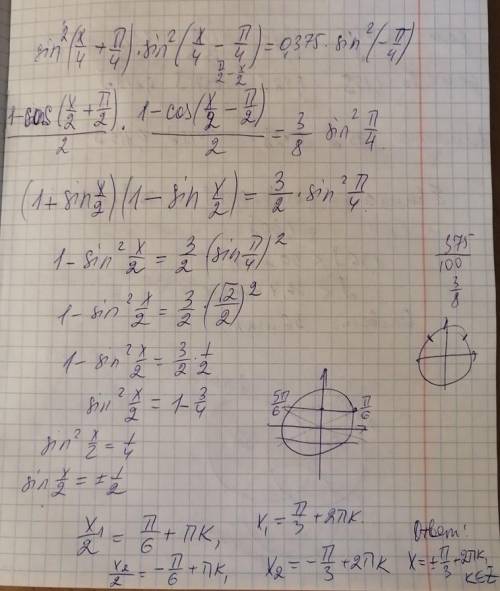 sin²(x/4 + π/4) · sin²(x/4 − π/4) = 0,375 · sin²(−π/4)
π/2 − x/2
1−cos(x/2 + π/2)/2 · 1−cos(x/2 − π/2)/2 = 3/8 sin² π/4
(1 + sin x/2)(1 − sin x/2) = 3/2 · sin² π/4
1 − sin² x/2 = 3/2 · (sin π/4)²
1 − sin² x/2 = 3/2 · (√2/2)²
1 − sin² x/2 = 3/2 · 1/2
sin² x/2 = 1 − 3/4
sin² x/2 = 1/4
sin x/2 = ± 1/2
375/100
3/8
5π/6
π/6
x₁/2 = π/6 + πk,
x₁ = π/3 + 2πk
x₂/2 = −π/6 + πk,
x₂ = −π/3 + 2πk
Ответ:
x = ± π/3 + 2πk,
k∈Z